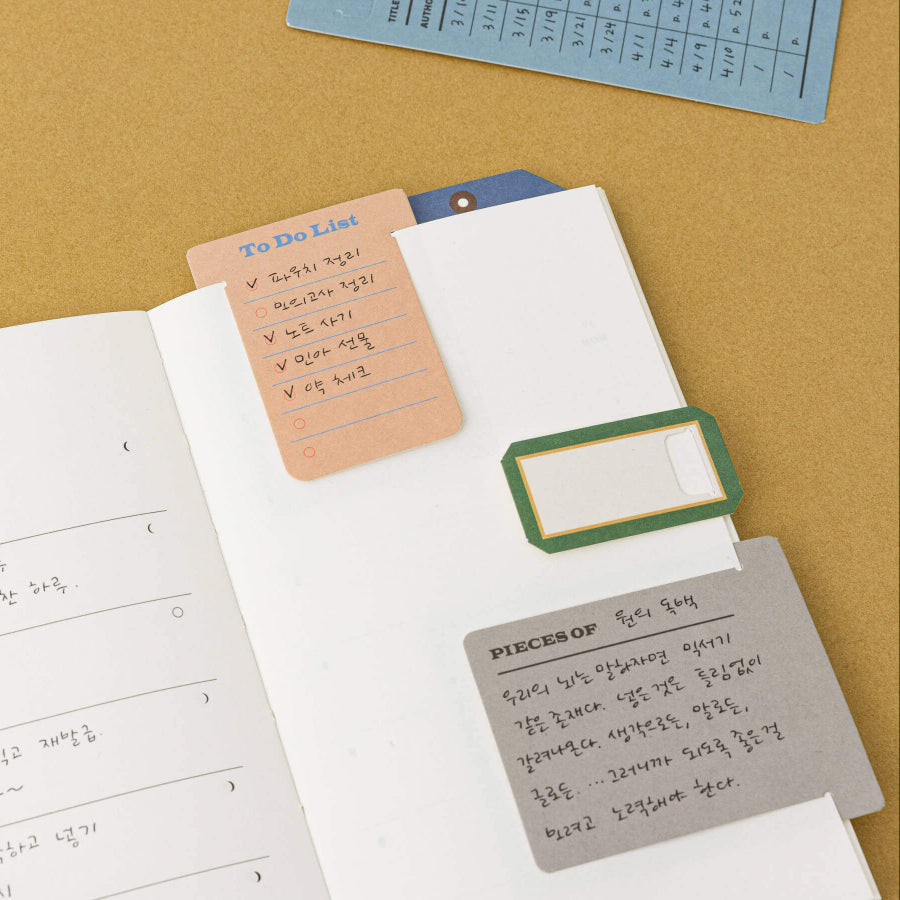 TITLE
AUTHO
3/10
3/11
3/15
3/19 p.
3/21 p.
3/24 p.
4/1 p.
4/4 p. 4
4/9 p. 4
4/10 p. 52
/ p.
/ p.
To Do List
V 파우치 정리
모의고사 정리
V 노트 사기
V 민아 선물
V 약 체크
찬 하루.
고 재발급.
하고 넣기
PIECES OF 원의 독백
우리의 뇌는 말하자면 믹서기
같은 존재다. 넣은 것은 틀림없이
갈려나온다. 생각으로든, 말로든,
글로든. ... 그러니까 되도록 좋은걸
넣으려고 노력해야 한다.